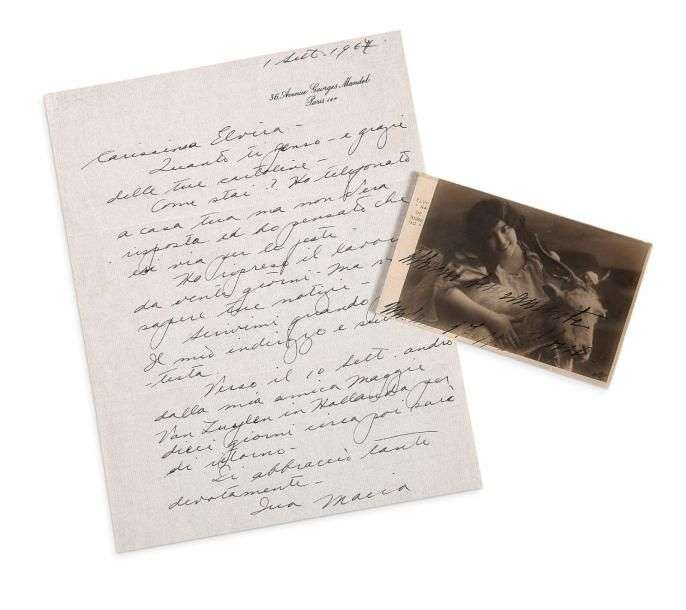 1 Sett. 1967.
36. Avenue Georges Mandel
Paris 16e
Carissima Elvira -
Quanto ti penso - e grazie
delle tue cartoline -
Come stai? Ho telefonato
a casa tua ma non c'era
risposta ed ho pensato che
eri via per le feste.
Ho ripreso il lavoro
da venti giorni. Ma
sapere tue notizie -
Scrivimi quando
Il mio indirizzo e su
-testa.
Verso il 10 sett. andro
dalla mia amica Maggie
Van Zuylen in Hollanda per
dieci giorni circa poi sarò
di ritorno -
Ti abbraccio tanto
devotamente -
Tua Maria